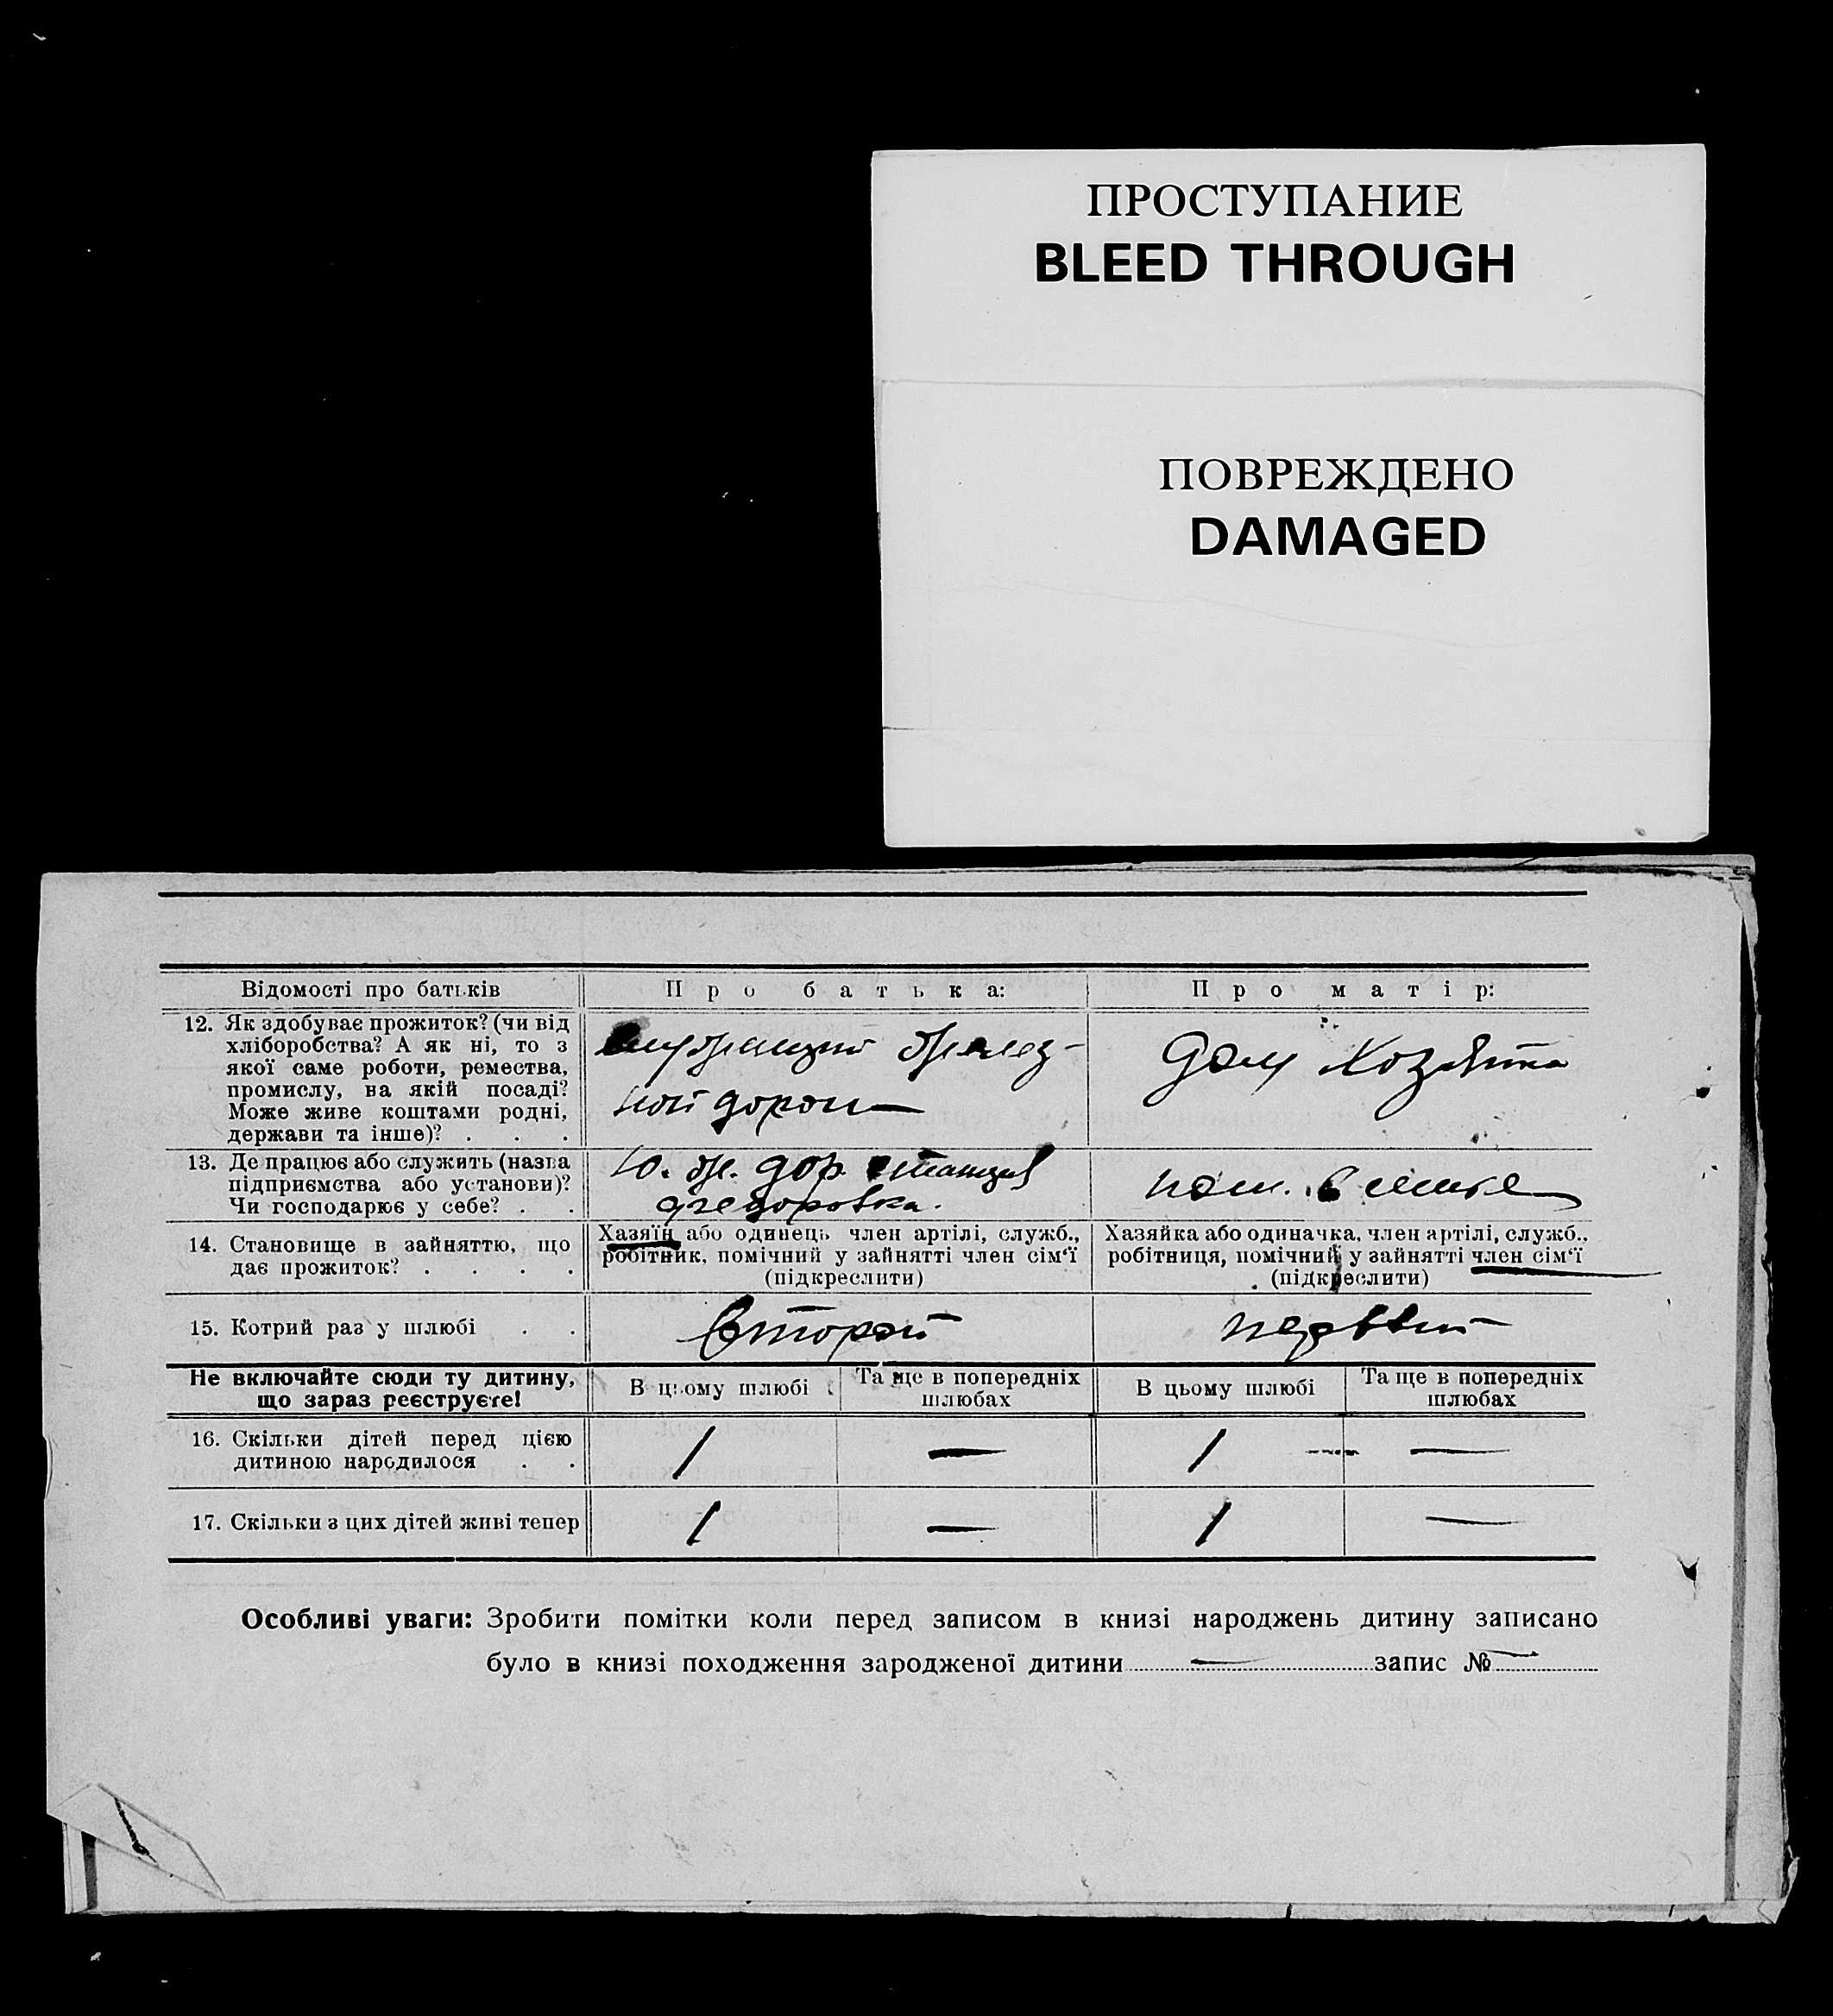 ПРОСТУПАНИЕ
BLEED THROUGH
ПОВРЕЖДЕНО
DAMAGED
Відомості про батьків
Про батька:
Про матір:
12. Як здобуває прожиток? (чи від
хліборобства? А як ні, то з
якої саме роботи, ремества,
промислу, на якій посаді?
Може живе коштами родні,
держави та інше)? . . .
служащий желез-
ной дороги
Дом хозяйка
13. Де працює або служить (назва
підприємства або установи)?
Чи господарює у себе? . .
Ю. ж. дор. станция
пом. в семье
14. Становище в зайняттю, що
дає прожиток? . . . .
Хазяїн або одинець член артілі, служб.,
робітник, помічний у зайнятті член сім'ї
(підкреслити)
Хазяйка або одиначка, член артілі, служб.,
робітниця, помічний у зайнятті член сім'ї
(підкреслити)
15. Котрий раз у шлюбі . .
второй
первый
Не включайте сюди ту дитину,
що зараз реєструєте!
В цьому шлюбі
Та ще в попередніх
шлюбах
В цьому шлюбі
Та ще в попередніх
шлюбах
16. Скільки дітей перед цією
дитиною народилося . .
1 — 1 —
17. Скільки з цих дітей живі тепер
1 — 1 —
Особливі уваги: Зробити помітки коли перед записом в книзі народжень дитину записано
було в книзі походження зародженої дитини — запис № —